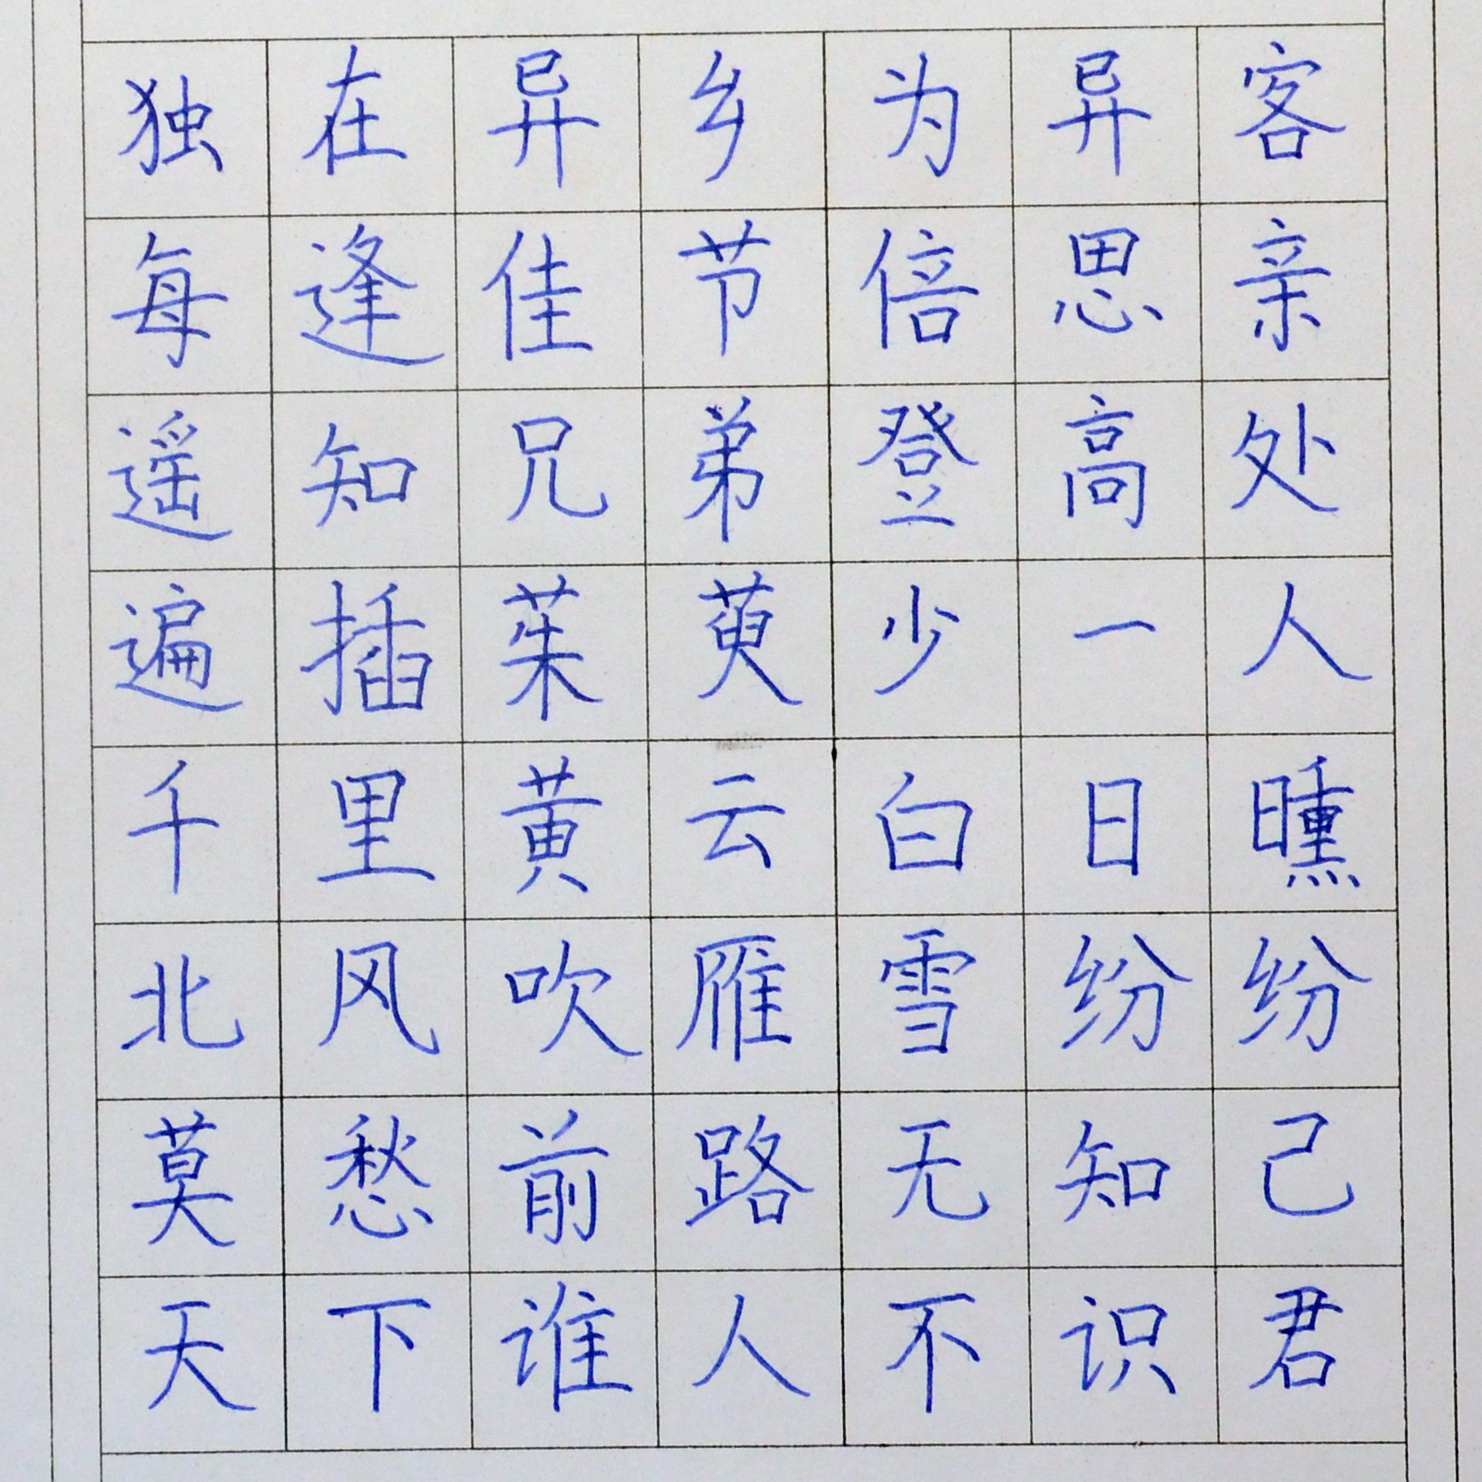 独在异乡为异客
每逢佳节倍思亲
遥知兄弟登高处
遍插茱萸少一人
千里黄云白日曛
北风吹雁雪纷纷
莫愁前路无知己
天下谁人不识君